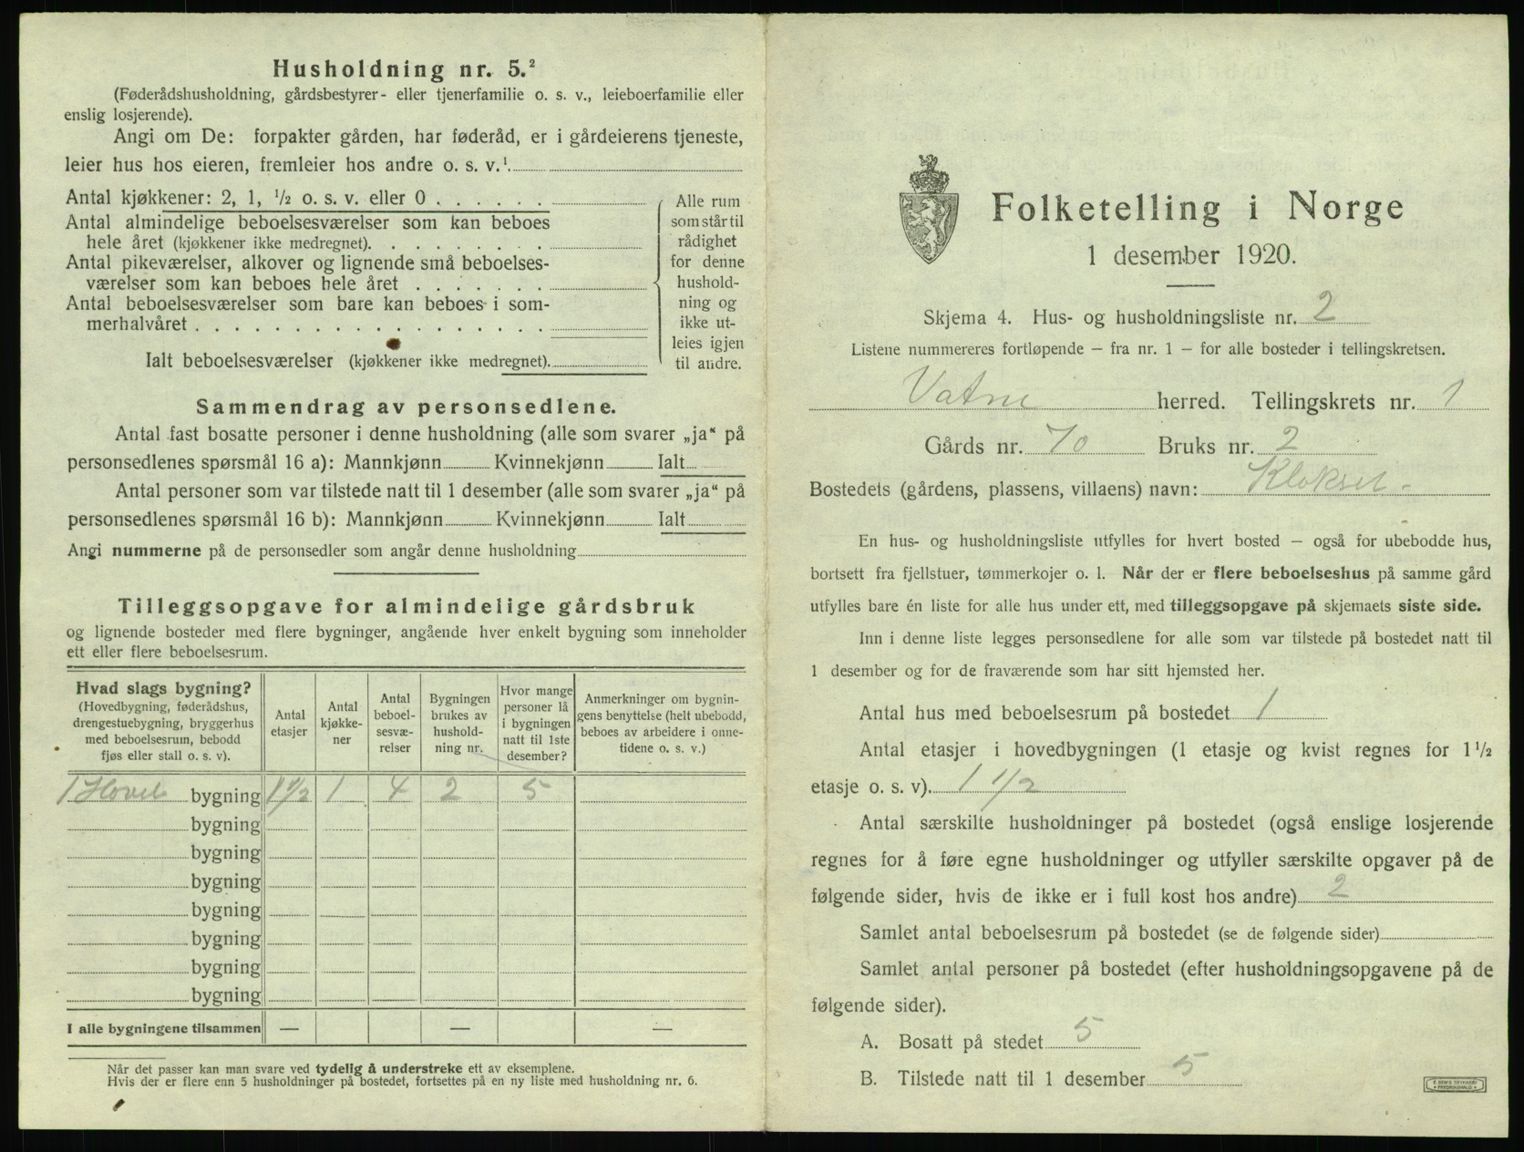 Husholdning nr. 5.²
(Føderådshusholdning, gårdsbestyrer- eller tjenerfamilie o. s. v., leieboerfamilie eller
enslig losjerende).
Angi om De: forpakter gården, har føderåd, er i gårdeierens tjeneste,
leier hus hos eieren, fremleier hos andre o. s. v.¹
Antal kjøkkener: 2, 1, ½ o. s. v. eller 0
Antal almindelige beboelsesværelser som kan beboes
hele året (kjøkkener ikke medregnet).
Antal pikeværelser, alkover og lignende små beboelses-
værelser som kan beboes hele året
Antal beboelsesværelser som bare kan beboes i som-
merhalvåret
Ialt beboelsesværelser (kjøkkener ikke medregnet).
Alle rum
som står til
rådighet
for denne
hushold-
ning og
ikke ut-
leies igjen
til andre.
Sammendrag av personsedlene.
Antal fast bosatte personer i denne husholdning (alle som svarer „ja" på
personsedlenes spørsmål 16 a): Mannkjønn Kvinnekjønn Ialt
Antal personer som var tilstede natt til 1 desember (alle som svarer „ja" på
personsedlenes spørsmål 16 b): Mannkjønn Kvinnekjønn Ialt
Angi nummerne på de personsedler som angår denne husholdning
Tilleggsopgave for almindelige gårdsbruk
og lignende bosteder med flere bygninger, angående hver enkelt bygning som inneholder
ett eller flere beboelsesrum.
Hvad slags bygning?
(Hovedbygning, føderådshus,
drengestuebygning, bryggerhus
med beboelsesrum, bebodd
fjøs eller stall o. s. v).
Antal
etasjer
Antal
kjøkke-
ner
Antal
beboel-
sesvæ-
relser
Bygningen
brukes av
hushold-
ning nr.
Hvor mange
personer lå
i bygningen
natt til 1ste
desember?
Anmerkninger om bygnin-
gens benyttelse (helt ubebodd,
beboes av arbeidere i onne-
tidene o. s. v.)
1 Hoved bygning 1 ½ 1 4 2 5
bygning
bygning
bygning
bygning
bygning
bygning
bygning
I alle bygningene tilsammen — — —
Når det passer kan man svare ved tydelig å understreke ett av eksemplene.
Hvis der er flere enn 5 husholdninger på bostedet, fortsettes på en ny liste med husholdning nr. 6.
Folketelling i Norge
1 desember 1920.
Skjema 4. Hus- og husholdningsliste nr. 2
Listene nummereres fortløpende — fra nr. 1 — for alle bosteder i tellingskretsen.
Vatne herred. Tellingskrets nr. 1
Gårds nr. 70 Bruks nr. 2
Bostedets (gårdens, plassens, villaens) navn: Klokset -
En hus- og husholdningsliste utfylles for hvert bosted — også for ubebodde hus,
bortsett fra fjellstuer, tømmerkojer o. l. Når der er flere beboelseshus på samme gård
utfylles bare én liste for alle hus under ett, med tilleggsopgave på skjemaets siste side.
Inn i denne liste legges personsedlene for alle som var tilstede på bostedet natt til
1 desember og for de fraværende som har sitt hjemsted her.
Antal hus med beboelsesrum på bostedet 1
Antal etasjer i hovedbygningen (1 etasje og kvist regnes for 1½
etasje o. s. v). 1 ½
Antal særskilte husholdninger på bostedet (også enslige losjerende
regnes for å føre egne husholdninger og utfyller særskilte opgaver på de
følgende sider, hvis de ikke er i full kost hos andre) 2
Samlet antal beboelsesrum på bostedet (se de følgende sider)
Samlet antal personer på bostedet (efter husholdningsopgavene på de
følgende sider).
A. Bosatt på stedet 5
B. Tilstede natt til 1 desember 5